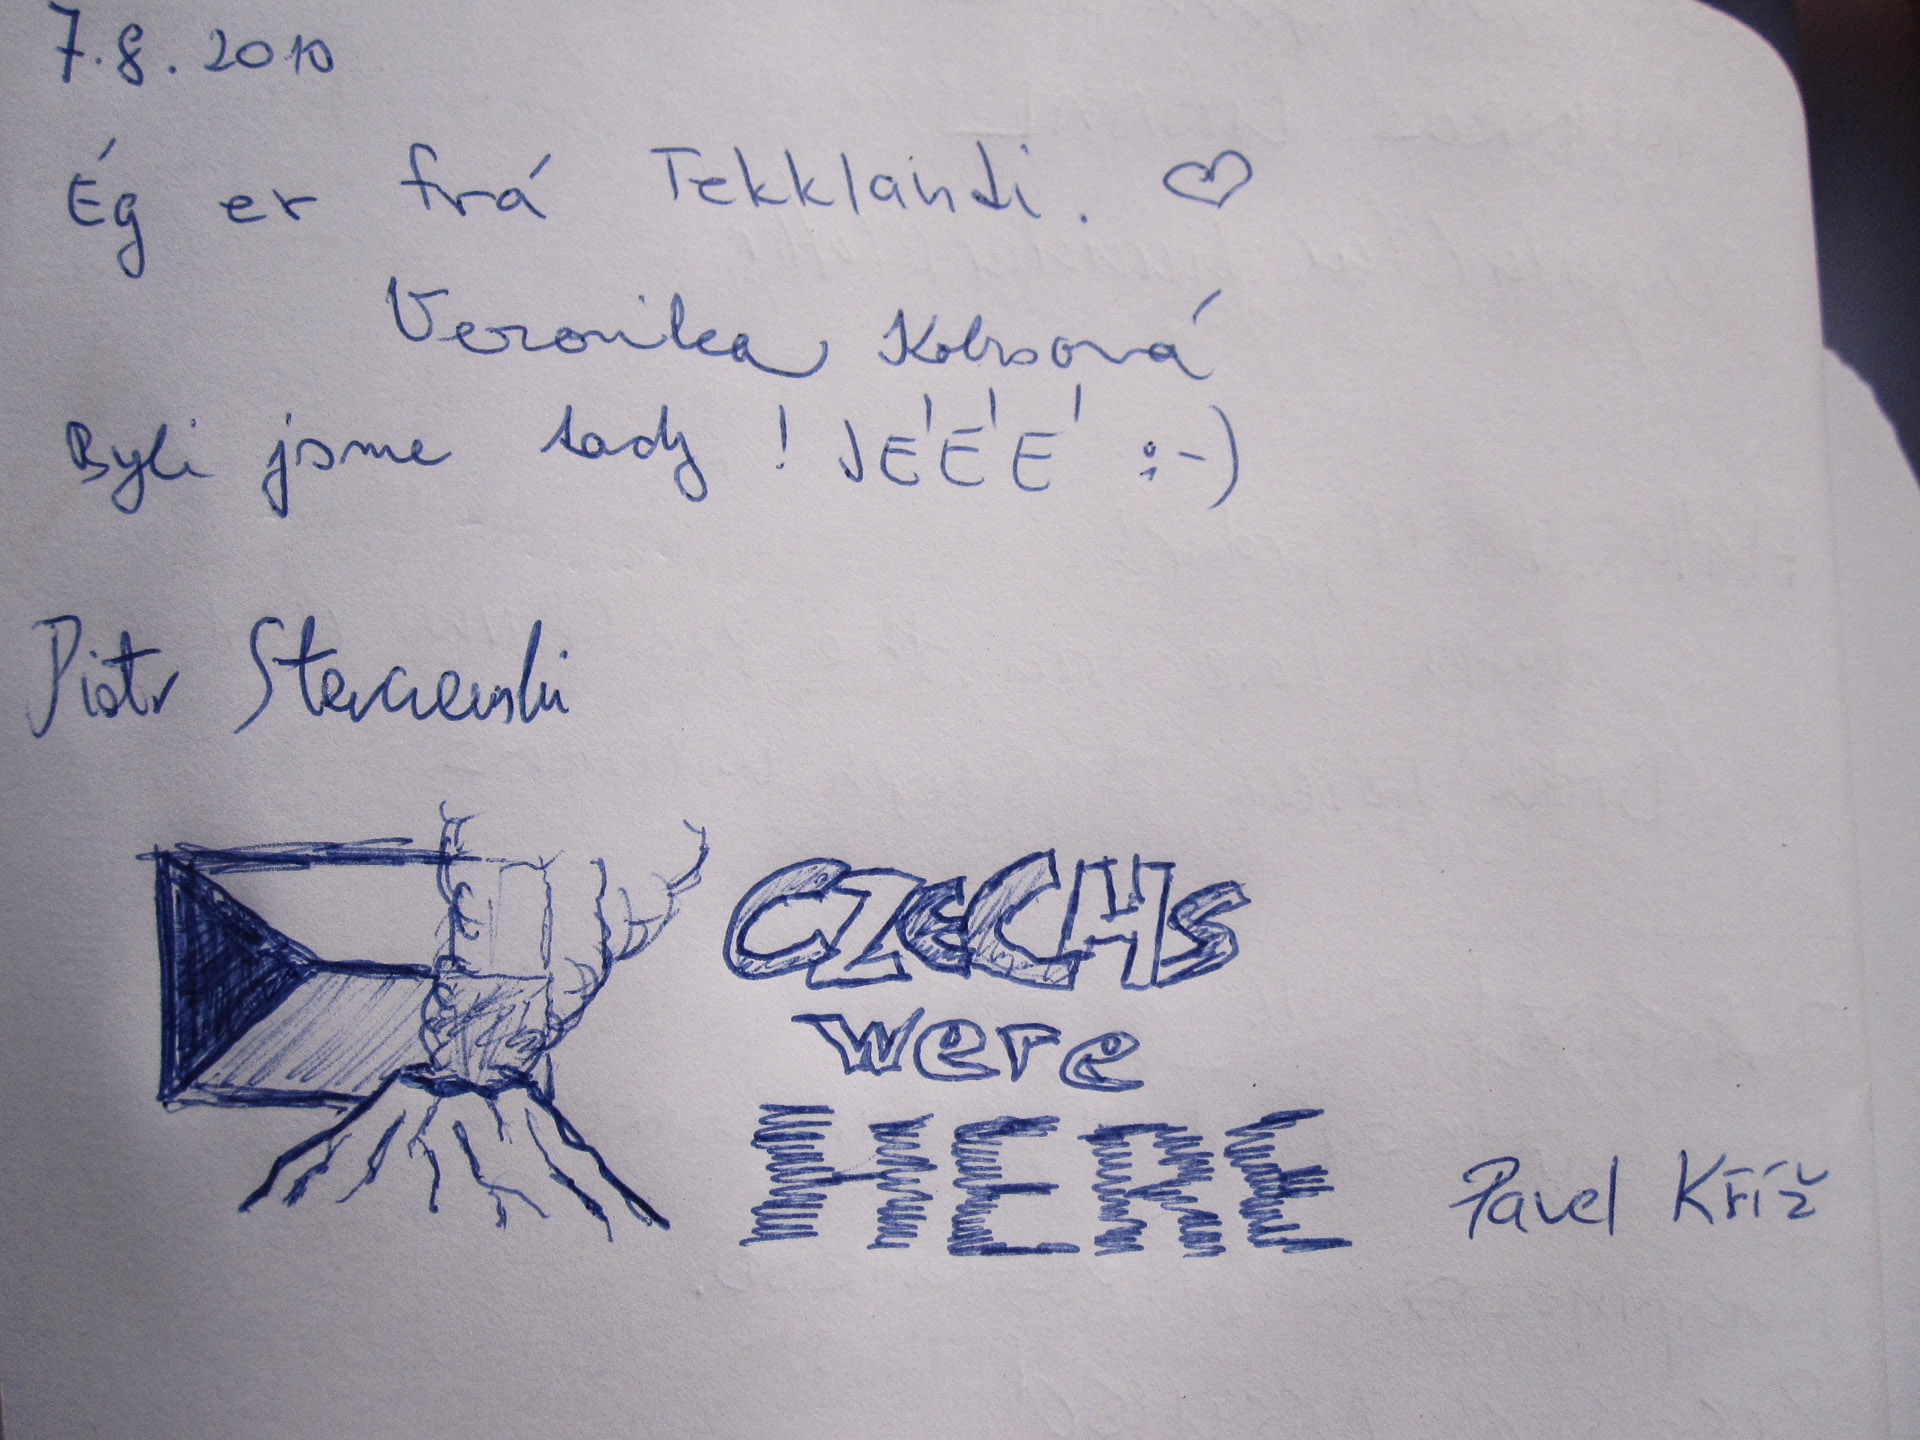 7.8.2010
Ég er frá Tekklandi. ♡
Veronika
Byli jsme tady! JÉÉÉ :-)
Piotr
CZECHS
were
HERE
Pavel Kříž